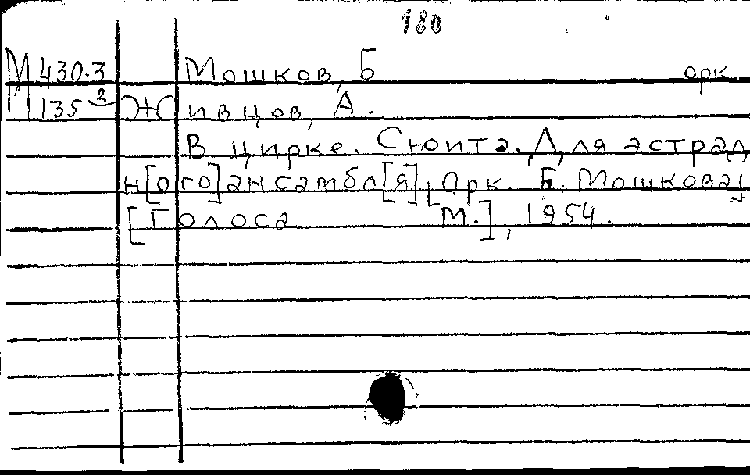 180
М 430.3 Мошков, Б орк
М 135 2 Живцов, А.
В цирке. Сюита. Для эстрад
н[ого] ансамбл[я], [Орк. Б. Мошкова]
[Голоса М.], 1954.